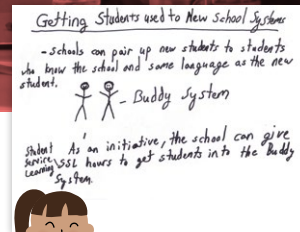 Getting Students used to New School Systems
- Schools can pair up new students to students
who know the school and same language as the new
student.
- Buddy System
As an initiative, the school can give
Student Service Learning SSL hours to get students into the Buddy
System.